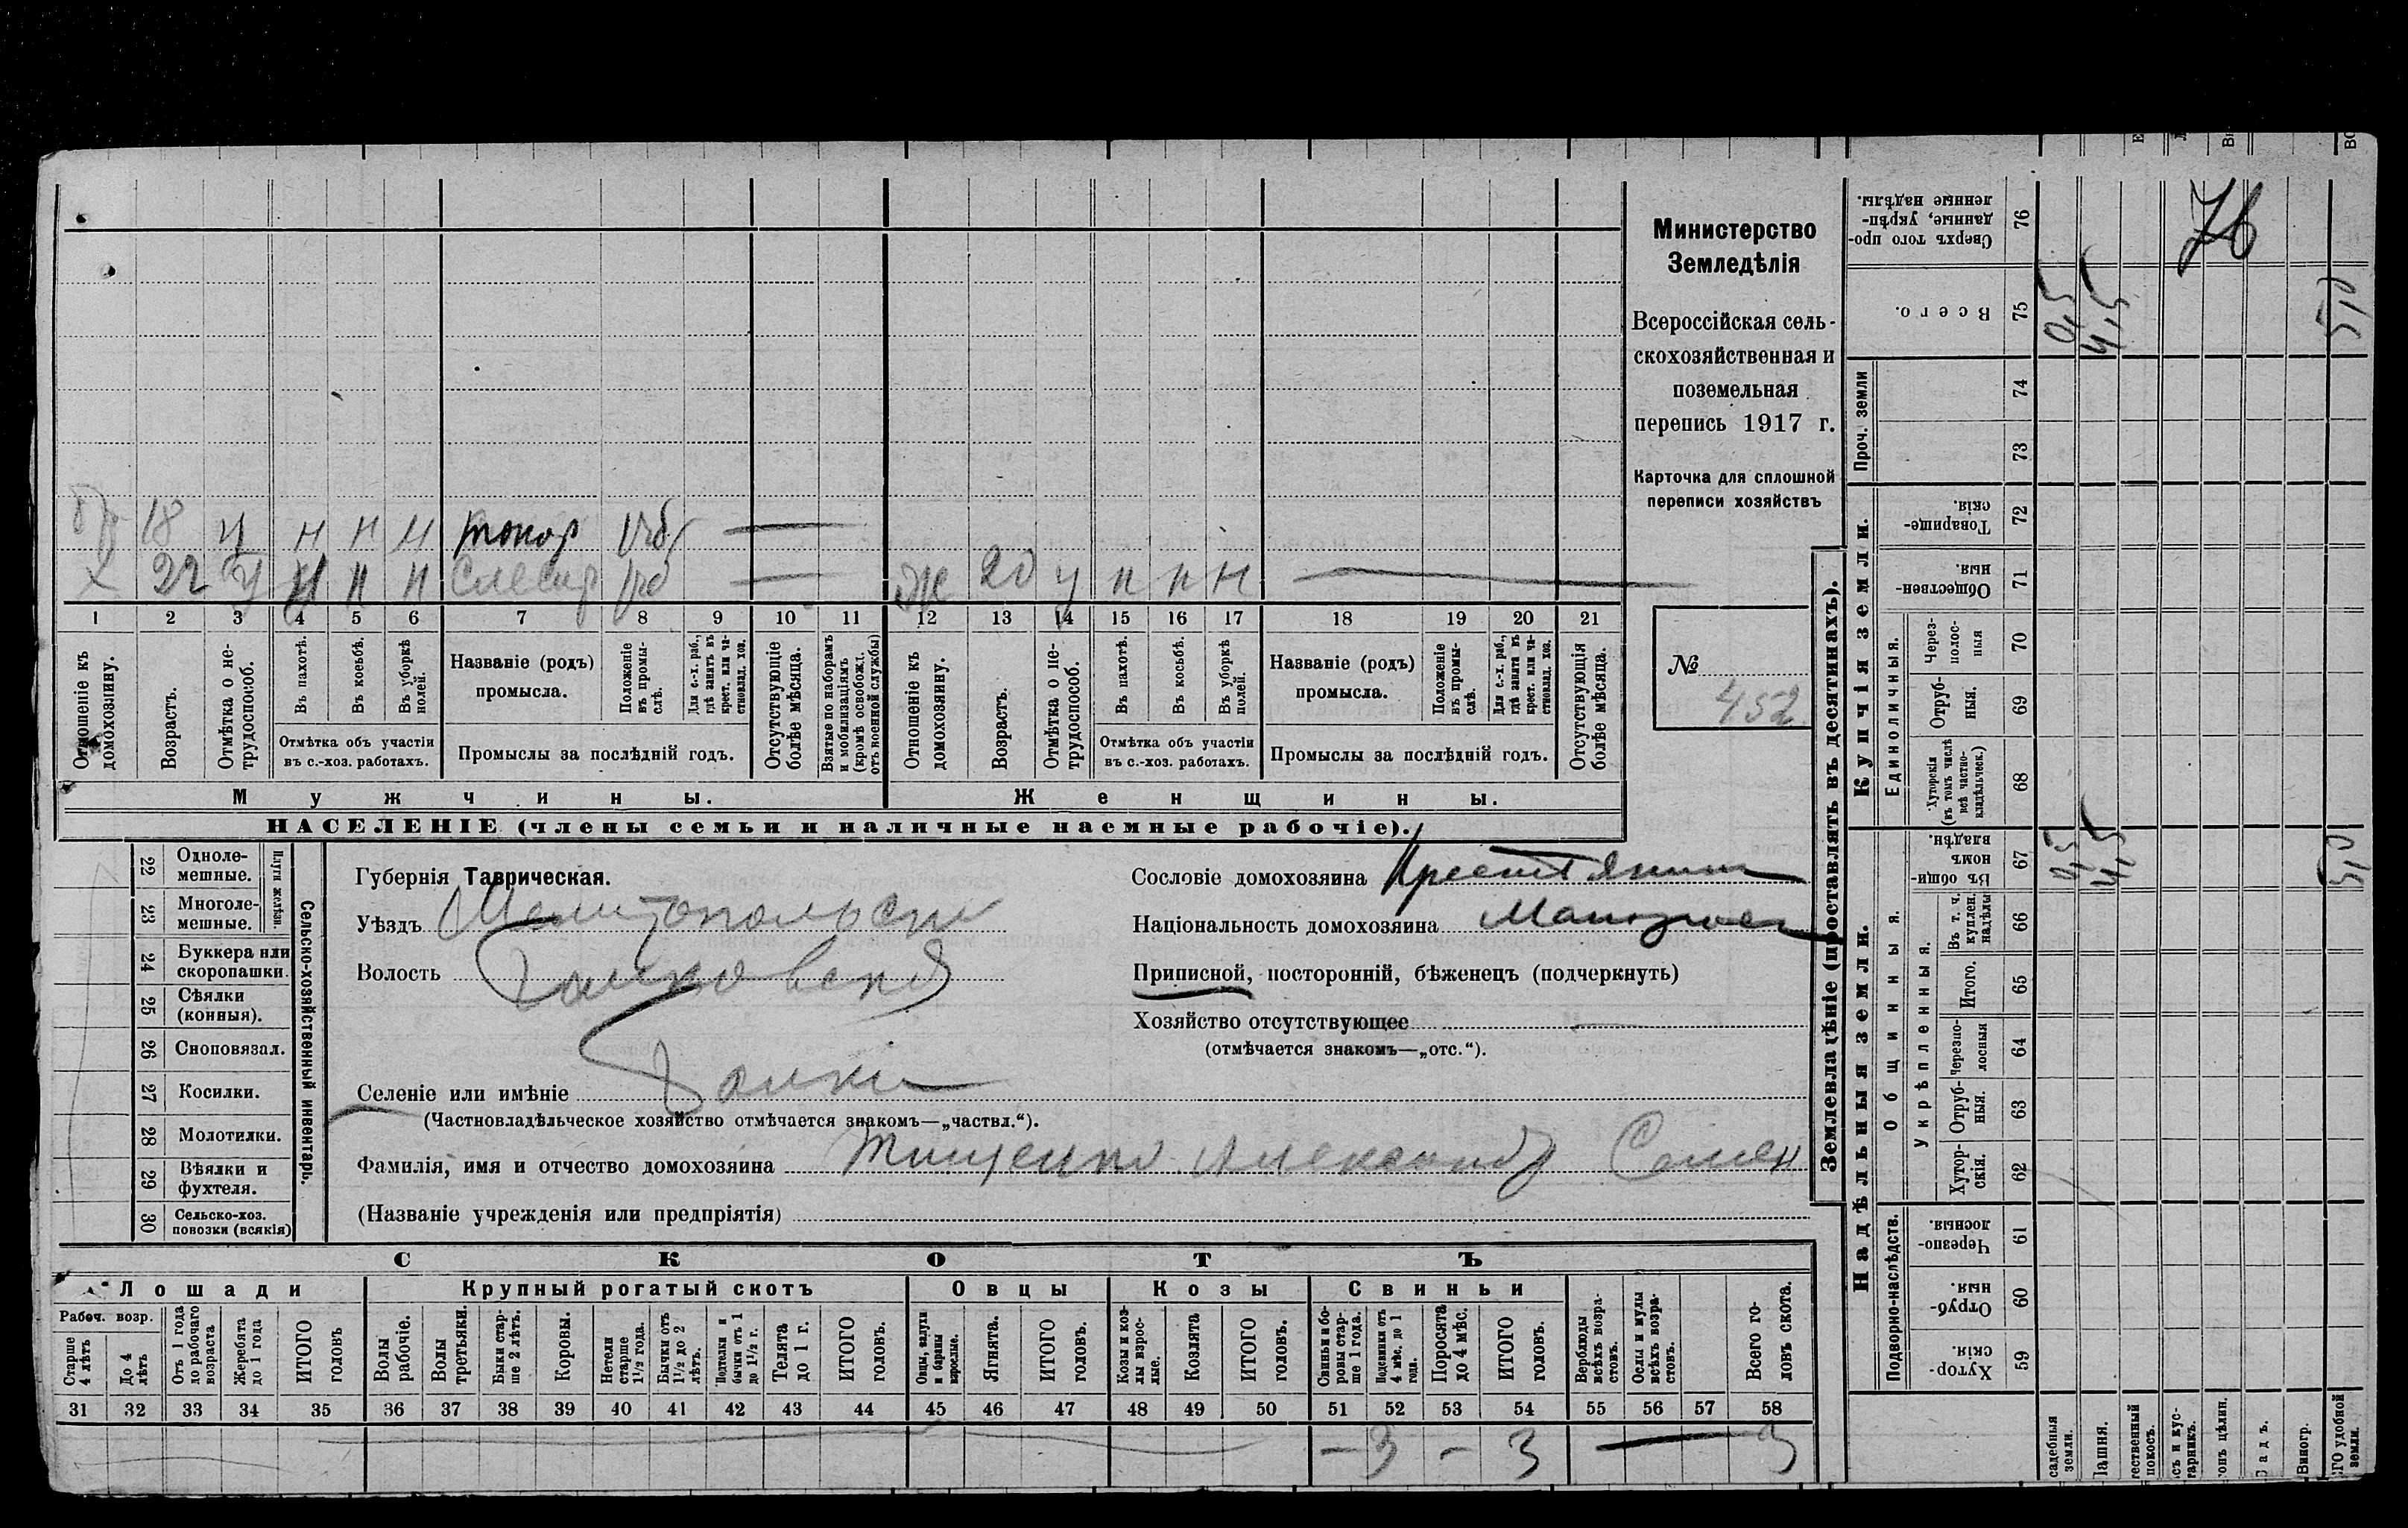 Министерство
Земледѣлія
Всероссійская сель-
скохозяйственная и
поземельная
перепись 1917 г.
Карточка для сплошной
переписи хозяйствъ
№
452
18 н н н токор
Х 22 н н н Слесар
Ж 20 н н н
1 2 3 4 5 6 7 8 9 10 11 12 13 14 15 16 17 18 19 20 21
Отношеніе къ домохозяину.
Возрастъ.
Отмѣтка о не-трудоспособ.
Въ пахотѣ.
Въ косьбѣ.
Въ уборкѣ полей.
Отмѣтка объ участіи
въ с.-хоз. работахъ.
Названіе (родъ)
промысла.
Положеніе въ промы-слѣ.
Для с.-х. раб., гдѣ занятъ въ крест. или ча-стновлад. хоз.
Промыслы за послѣдній годъ.
Отсутствующіе болѣе мѣсяца.
Взятые по наборамъ и мобилизаціямъ (кромѣ освобожд. отъ военной службы)
Отношеніе къ домохозяину.
Возрастъ.
Отмѣтка о не-трудоспособ.
Въ пахотѣ.
Въ косьбѣ.
Въ уборкѣ полей.
Отмѣтка объ участіи
въ с.-хоз. работахъ.
Названіе (родъ)
промысла.
Положеніе въ промы-слѣ.
Для с.-х. раб., гдѣ занята въ крест. или ча-стновлад. хоз.
Промыслы за послѣдній годъ.
Отсутствующія болѣе мѣсяца.
Мужчины.
Женщины.
НАСЕЛЕНІЕ (члены семьи и наличные наемные рабочіе).
Сельско-хозяйственный инвентарь.
Плуги желѣзн.
22 Одноле-мешные.
23 Многоле-мешные.
24 Буккера или скоропашки.
25 Сѣялки (конныя).
26 Сноповязал.
27 Косилки.
28 Молотилки.
29 Вѣялки и фухтеля.
30 Сельско-хоз. повозки (всякія)
Губернія Таврическая.
Уѣздъ Мелитопольск
Волость
Селеніе или имѣніе
(Частновладѣльческое хозяйство отмѣчается знакомъ—„частвл.“).
Фамилія, имя и отчество домохозяина Тищенко Александр Семен
(Названіе учрежденія или предпріятія)
Сословіе домохозяина Крестьянин
Національность домохозяина Малоросс
Приписной, посторонній, бѣженецъ (подчеркнуть)
Хозяйство отсутствующее
(отмѣчается знакомъ—„отс.“).
СКОТЪ
Лошади
Рабоч. возр.
Старше 4 лѣтъ
До 4 лѣтъ
Отъ 1 года до рабочаго возраста
Жеребята до 1 года
ИТОГО головъ
Крупный рогатый скотъ
Волы рабочіе.
Волы третьяки.
Быки стар-ше 2 лѣтъ.
Коровы.
Нетели старше 1½ года.
Бычки отъ 1½ до 2 лѣтъ.
бычки отъ 1 до 1½ г.
Телята до 1 г.
ИТОГО головъ.
Овцы
Овцы, валухи и бараны взрослые.
Ягнята.
ИТОГО головъ.
Козы
Козы и коз-лы взрос-лые.
Козлята
ИТОГО головъ.
Свиньи
Свиньи и бо-ровы стар-ше 1 года.
Подсвинки отъ 4 мѣс. до 1 года.
Поросята до 4 мѣс.
ИТОГО головъ.
Верблюды всѣхъ возра-стовъ.
Ослы и мулы всѣхъ возра-стовъ.
Всего го-ловъ скота.
31 32 33 34 35 36 37 38 39 40 41 42 43 44 45 46 47 48 49 50 51 52 53 54 55 56 57 58
— 3 — 3 — 3
Землевладѣніе (проставлять въ десятинахъ).
Купчія земли.
Надѣльныя земли.
76 Сверхъ того про-данные, укрѣп-ленные надѣлы.
75 Всего.
0,5 4,5 5,0
Проч. земли
74
73
72 Товарище-скія.
71 Обществен-ныя.
Единоличныя.
70 Через-полос-ныя
69 Отруб-ныя.
68 Хуторскія (въ томъ числѣ всѣ частно-владѣльческ.)
Общинныя.
67 Въ общи-номъ владѣн.
0,5 4,5 5,0
Укрѣпленныя.
66 Въ т. ч. куплен. надѣлы
65 Итого.
64 Черезпо-лосныя
63 Отруб-ныя.
62 Хутор-скія.
Подворно-наслѣдств.
61 Черезпо-лосныя.
60 Отруб-ныя.
59 Хутор-скія.
садебныя земли.
Пашня.
тественный покосъ.
съ и кус-тарникъ.
онъ цѣлин.
Садъ.
Виногр.
ГО удобной земли.